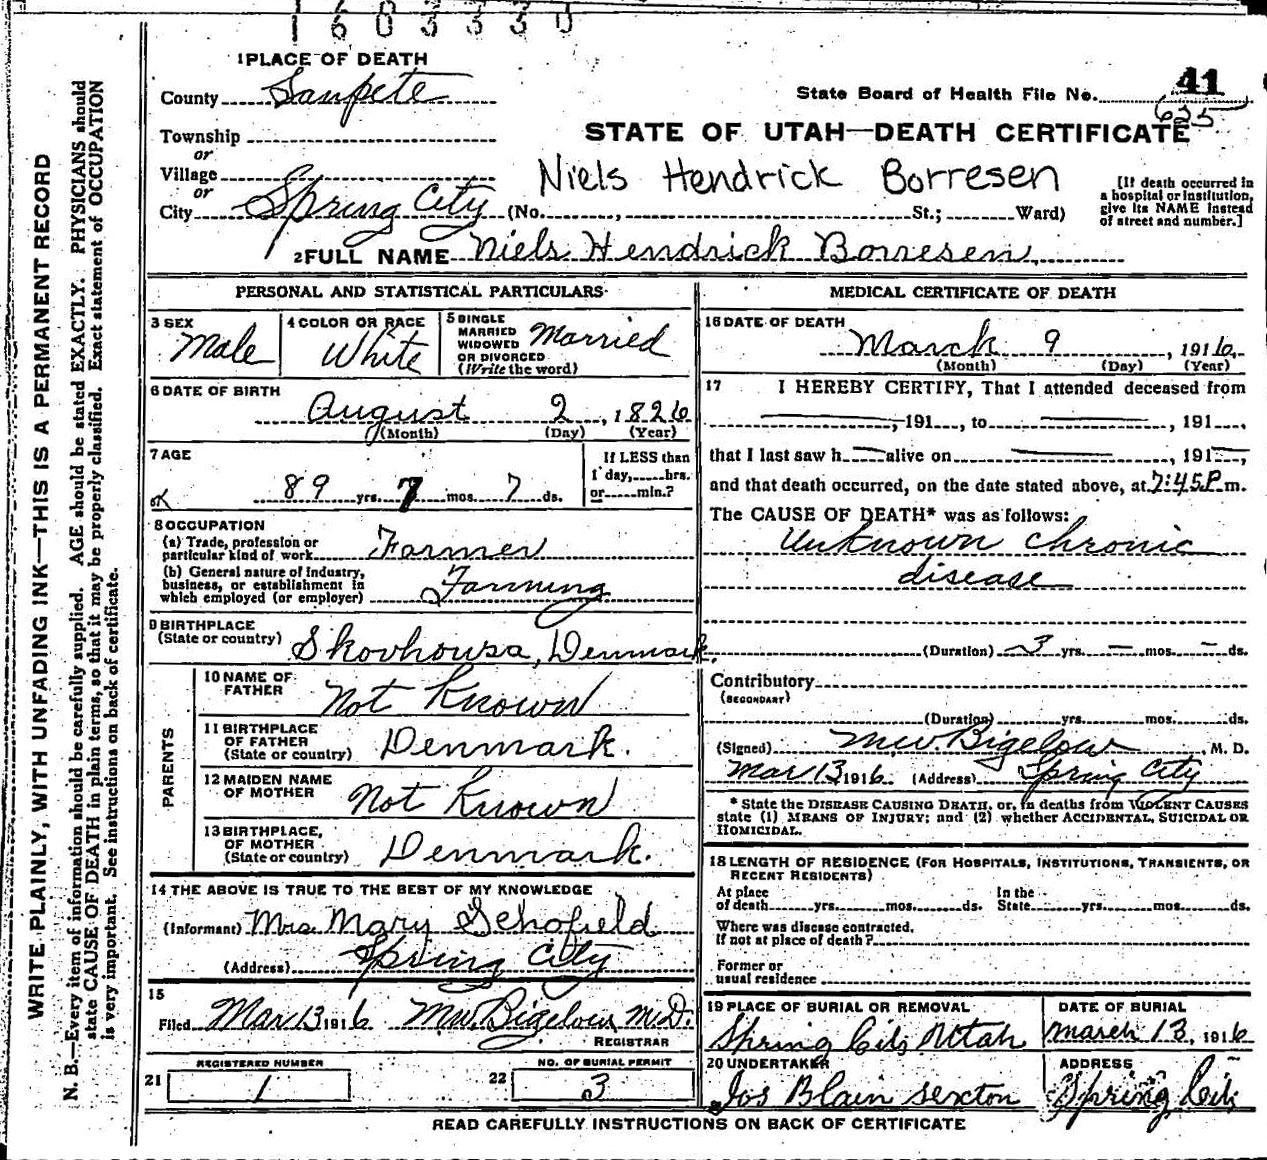 1603330
1 PLACE OF DEATH
County Sanpete
Township
or
Village
or
City Spring City (No. , St.; Ward)
State Board of Health File No. 41
625
STATE OF UTAH—DEATH CERTIFICATE
Niels Hendrick Borresen
[If death occurred in a hospital or institution, give its NAME instead of street and number.]
2 FULL NAME Niels Hendrick Borresen
PERSONAL AND STATISTICAL PARTICULARS
3 SEX Male
4 COLOR OR RACE White
5 SINGLE MARRIED WIDOWED OR DIVORCED (Write the word) Married
6 DATE OF BIRTH
August 2, 1826
(Month) (Day) (Year)
7 AGE
89 yrs. 7 mos. 7 ds.
If LESS than 1 day, hrs. or min.?
8 OCCUPATION
(a) Trade, profession or particular kind of work Farmer
(b) General nature of industry, business, or establishment in which employed (or employer) Farming
9 BIRTHPLACE
(State or country) Skovhousa, Denmark.
PARENTS
10 NAME OF FATHER Not Known
11 BIRTHPLACE OF FATHER (State or country) Denmark.
12 MAIDEN NAME OF MOTHER Not Known
13 BIRTHPLACE, OF MOTHER (State or country) Denmark.
14 THE ABOVE IS TRUE TO THE BEST OF MY KNOWLEDGE
(Informant) Mrs. Mary Schofield
(Address) Spring City
15
Filed Mar 13 1916 M.W. Bigelow M.D.
REGISTRAR
REGISTERED NUMBER
21 1
NO. OF BURIAL PERMIT
22 3
MEDICAL CERTIFICATE OF DEATH
16 DATE OF DEATH
March 9, 1916
(Month) (Day) (Year)
17 I HEREBY CERTIFY, That I attended deceased from
, 191 , to , 191 ,
that I last saw h alive on , 191 ,
and that death occurred, on the date stated above, at 7:45 P m.
The CAUSE OF DEATH* was as follows:
Unknown chronic
disease
(Duration) 3 yrs. – mos. – ds.
Contributory
(SECONDARY)
(Duration) yrs. mos. ds.
(Signed) M.W. Bigelow, M. D.
Mar 13 1916 (Address) Spring City
* State the DISEASE CAUSING DEATH, or, in deaths from VIOLENT CAUSES
state (1) MEANS OF INJURY; and (2) whether ACCIDENTAL, SUICIDAL OR
HOMICIDAL.
18 LENGTH OF RESIDENCE (FOR HOSPITALS, INSTITUTIONS, TRANSIENTS, OR
RECENT RESIDENTS)
At place of death yrs. mos. ds. In the State yrs. mos. ds.
Where was disease contracted,
If not at place of death?
Former or
usual residence
19 PLACE OF BURIAL OR REMOVAL
Spring City Utah
DATE OF BURIAL
March 13, 1916
20 UNDERTAKER
Jos Blain sexton
ADDRESS
Spring City
READ CAREFULLY INSTRUCTIONS ON BACK OF CERTIFICATE
WRITE PLAINLY, WITH UNFADING INK—THIS IS A PERMANENT RECORD
N. B.—Every item of information should be carefully supplied. AGE should be stated EXACTLY. PHYSICIANS should
state CAUSE OF DEATH in plain terms, so that it may be properly classified. Exact statement of OCCUPATION
is very important. See instructions on back of certificate.